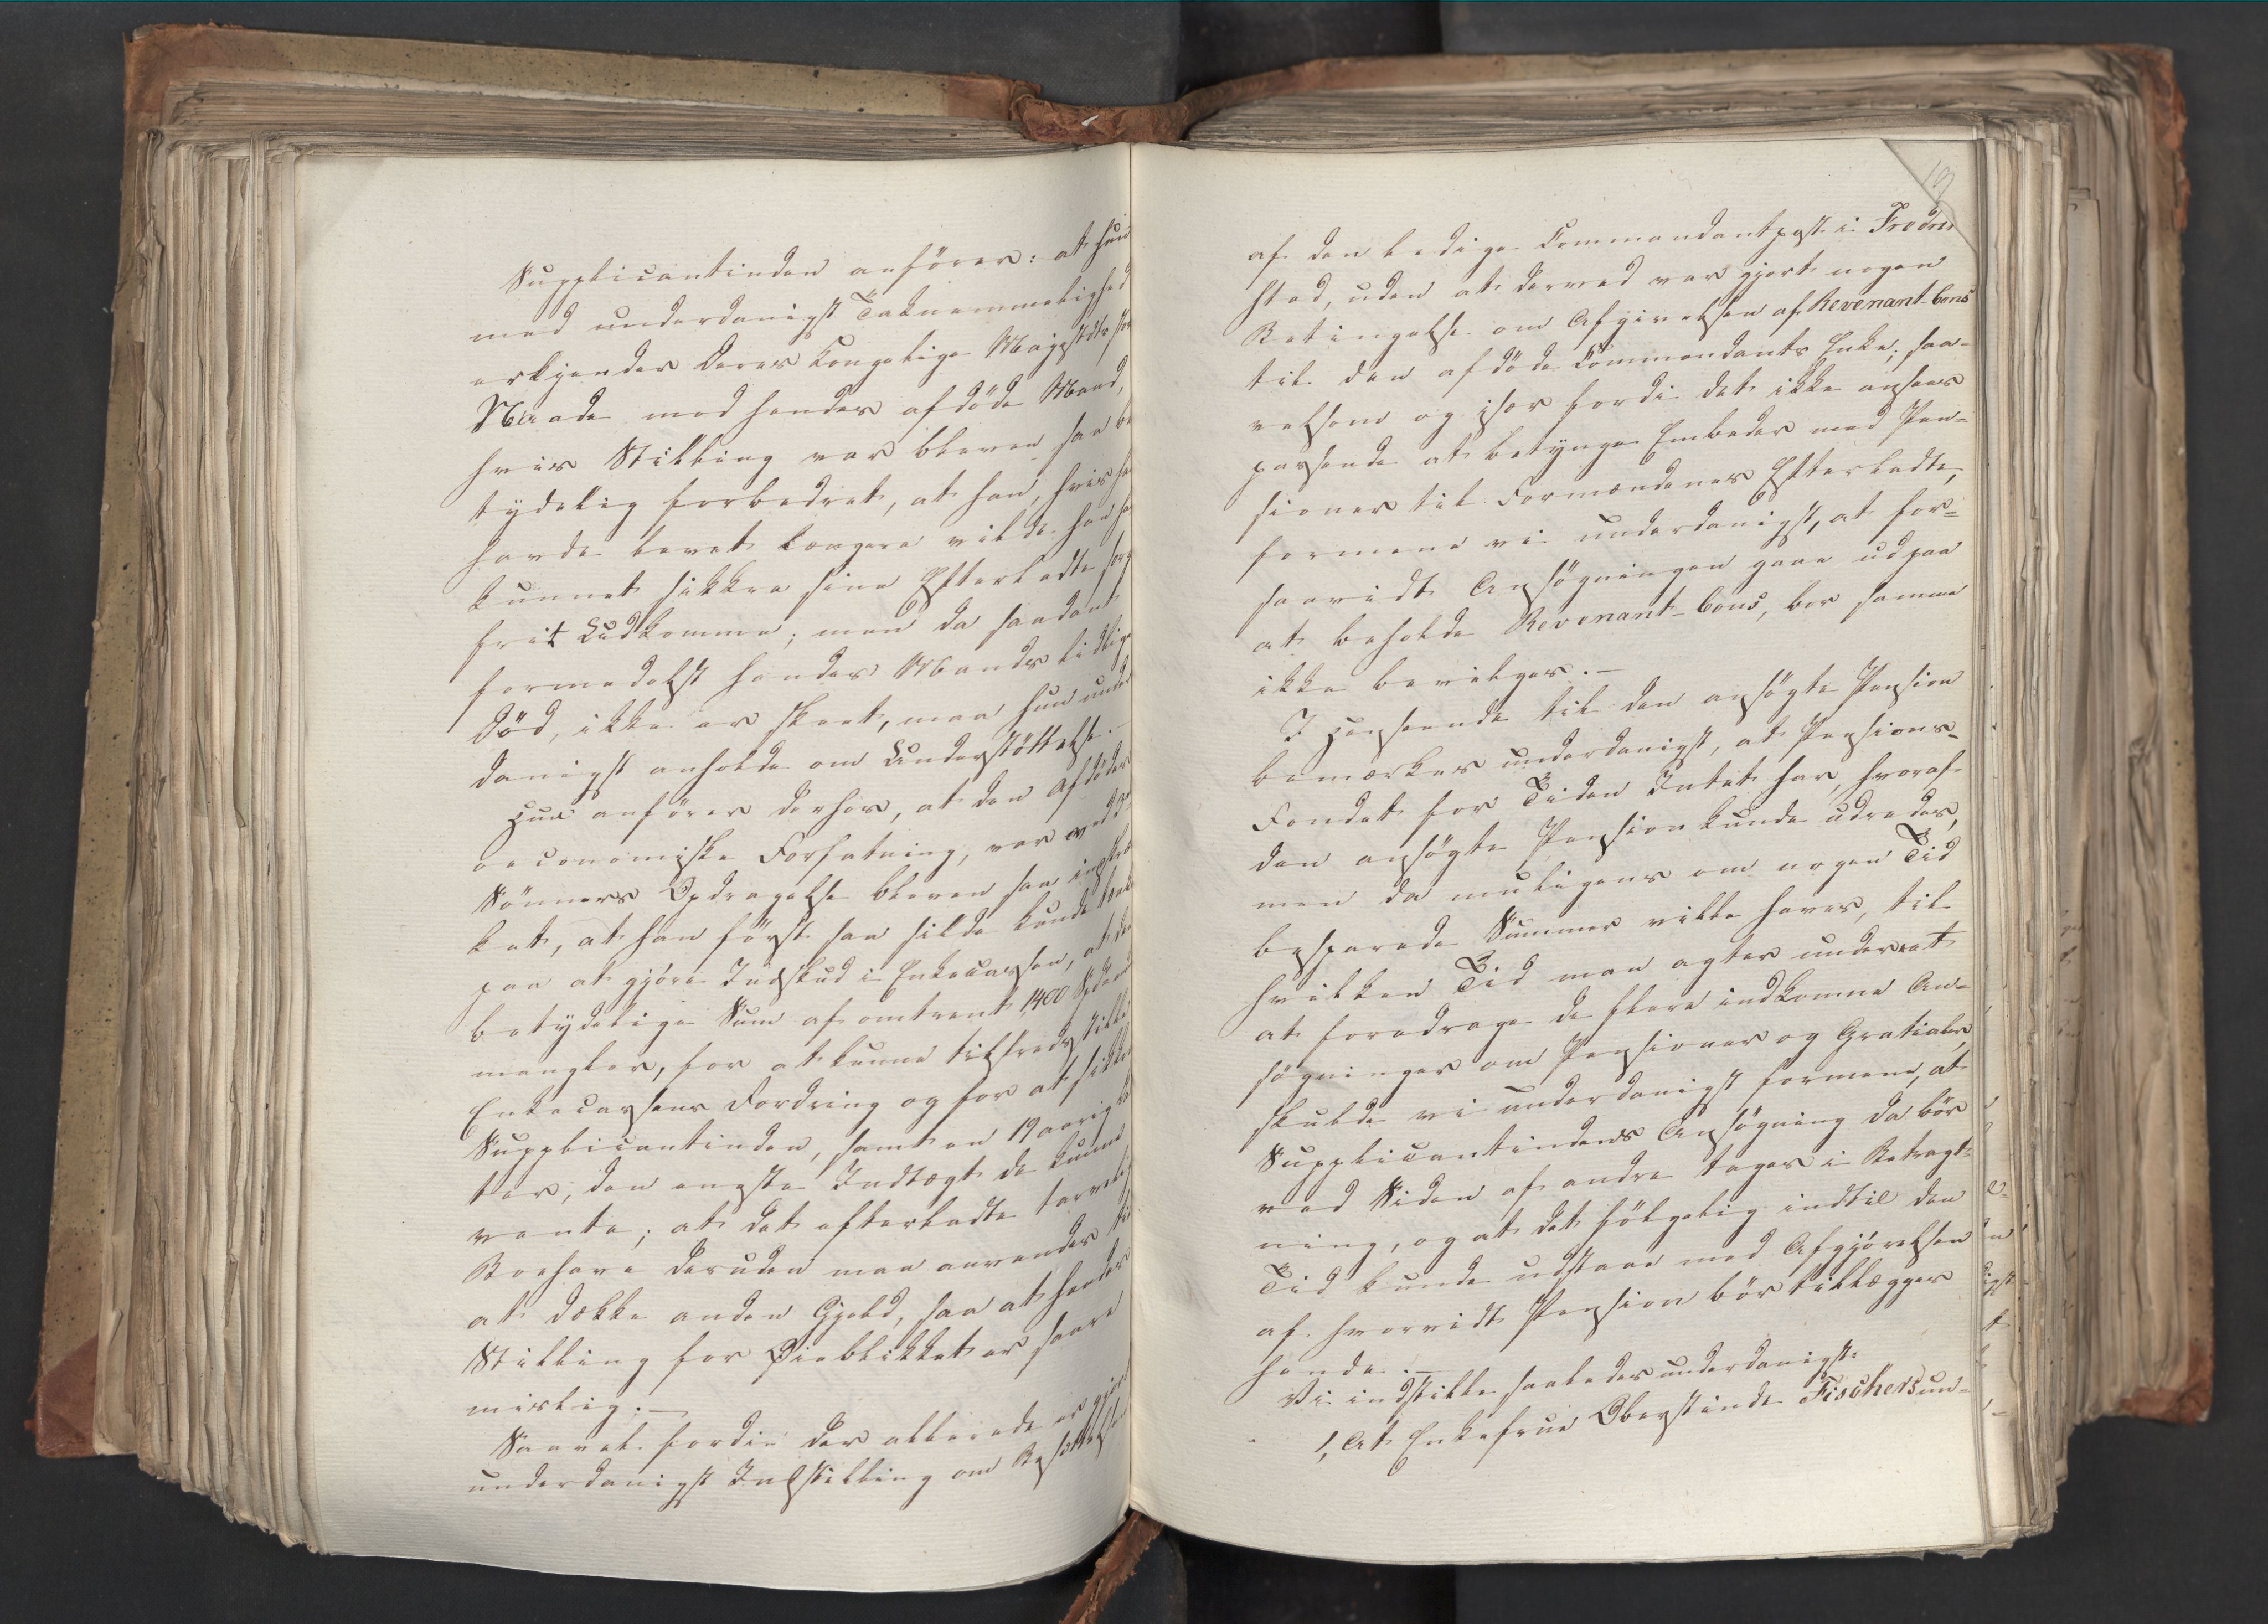 Supplicantinden anfører: at hun
med underdanigst Taknemmelighed
erkjender Deres Kongelige Majestæts
Naade mod hendes afdöde Mand,
hvis Stilling var bleven saa be
tydelig forbedret, at han, hvis han
havde levet længere vilde han ha
kunnet sikkre sine Efterladte sorg
frit Udkomme; men da saadant
formedelst hendes Mands tidlige
Död, ikke er skeet, maa hun under
danigst anholde om Understöttelse.
Hun anförer derhos, at den Afdödes
oeconomiske Forfatning, var ved
Sönners Opdragelse bleven saa indskræn
ket, at han först saa silde kunde tænke
paa at gjöre Indskud i Enkecassen, at den
betydelige Sum af omtrent 1,400 Spd
mangler, for at kunne tilfredsstille
Enkecassens Fordring og for at sikkre
Supplicantinden, samt en 19 aarig Dat
ter, den eneste Indtægt de kunne
vente; at det efterladte tarvelige
Boehave desuden maa anvendes til
at dække anden Gjeld, saa at hendes
Stilling for Øieblikket er saare
mislig. —
Saavel fordi der allerede er gjort
underdanigst Indstilling om Besættelsen
19
af den ledige Commandantpost i Fredrik
stad, uden at derved var gjort nogen
Betingelse om Afgivelsen af Revenant-Cons
til den afdöde Commandants Enke; saa-
velsom og især fordi det ikke ansees
passende at betynge Embeder med Pen-
sioner til Formændenes Efterladte,
formene vi underdanigst, at for-
saavidt Ansögningen gaae ud paa
at beholde Revenant-Cons, bör samme
ikke bevilges. —
I Henseende til den ansögte Pension
bemærkes underdanigst, at Pensions-
Fondet for Tiden Intet har, hvoraf
den ansögte Pension kunde udredes,
men da muligens om nogen Tid
besparede Summer ville haves, til
hvilken Tid man agter underdt
at foredrage de flere indkomne An-
sögninger om Pensioner og Gratialer,
skulde vi underdanigst formene, at
Supplicantindens Ansögning da bör
ved Siden af andre tages i Betragt-
ning, og at det fölgelig indtil den
Tid kunde udstaae med Afgjörelsen
af hvorvidt Pension bör tillægges
hende. —
Vi indstille saaledes underdanigst:
1, At Enkefrue Oberstinde Fischers un-